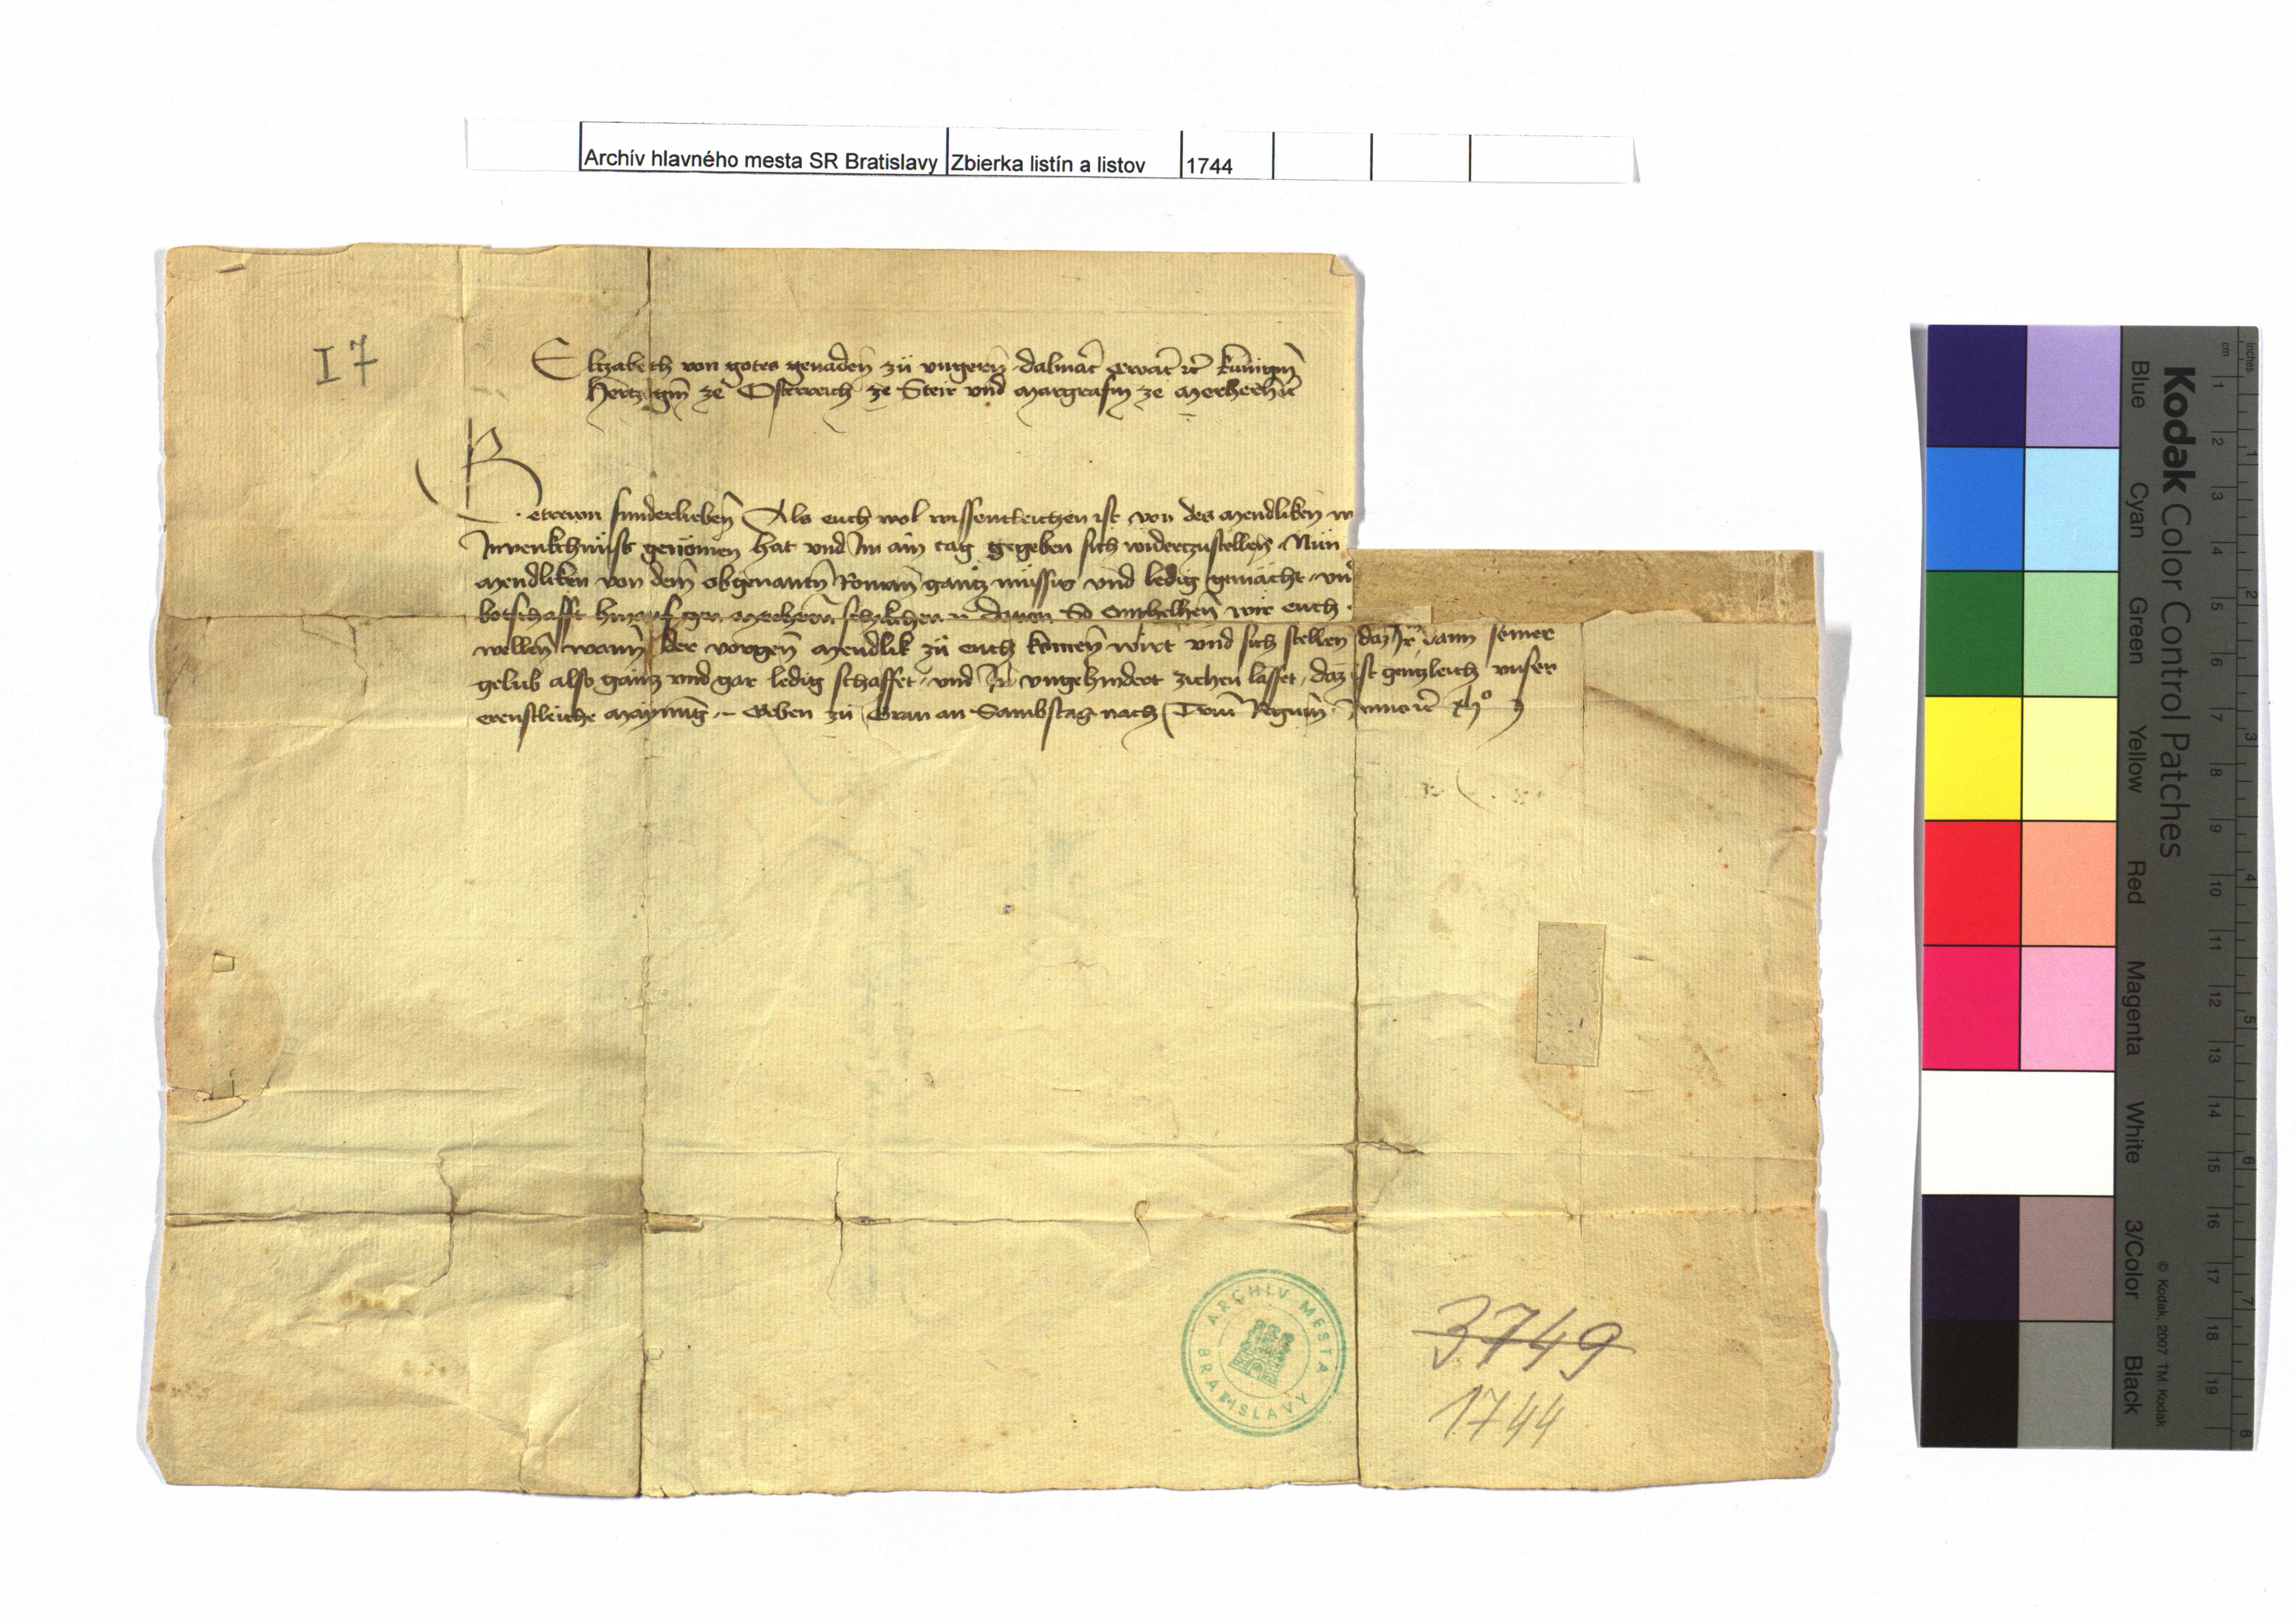 Archív hlavného mesta SR Bratislavy Zbierka listín a listov 1744
I 7
Elizabeth von gotes genaden zu ungern dalmac̄ croac̄ ec̄ kunigin
Hertzogin ze Osterreich ze Steir und margrafin ze merhern ec̄
Getrewn sunderlieben Als euch wol wissentleichen ist von des mendliken
Invenkchnüst genomen hat und Im ain tag gegeben sich widerzustellen Nun
mendliken von dem obgenantn Roman gantz müssig und ledig gemacht
botschafft hinauf gen merhern schikchen So emphelhen wir euch
wellen wann der vorgen̄ mendlik zu euch komen wirt und sich stellen daz Ir dann seiner
gelub also gantz und gar ledig schaffet und In ungehindert ziehen lasset daz ist gentzleich unser
ernstleiche maynung Geben zu Gran an Sambstag nach Trium Regum Anno ec̄ xlo
ARCHÍV MESTA BRATISLAVY
3749
1744
Kodak Color Control Patches
Blue Cyan Green Yellow Red Magenta White 3/Color Black
© Kodak, 2007 TM: Kodak
inches 1 2 3 4 5 6 7 8
cm 1 2 3 4 5 6 7 8 9 10 11 12 13 14 15 16 17 18 19